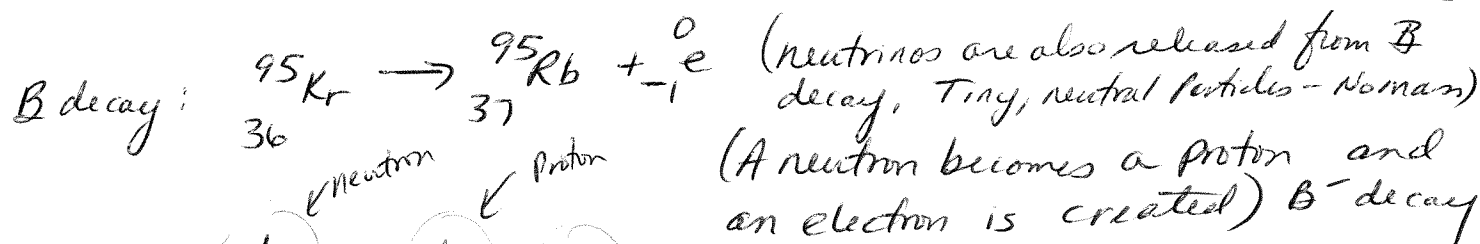 B decay: ⁹⁵₃₆Kr → ⁹⁵₃₇Rb + ⁰₋₁e (neutrinos are also released from B
decay, Tiny, neutral Particles - No mass)
neutron Proton (A neutron becomes a proton and
an electron is created) B⁻ decay